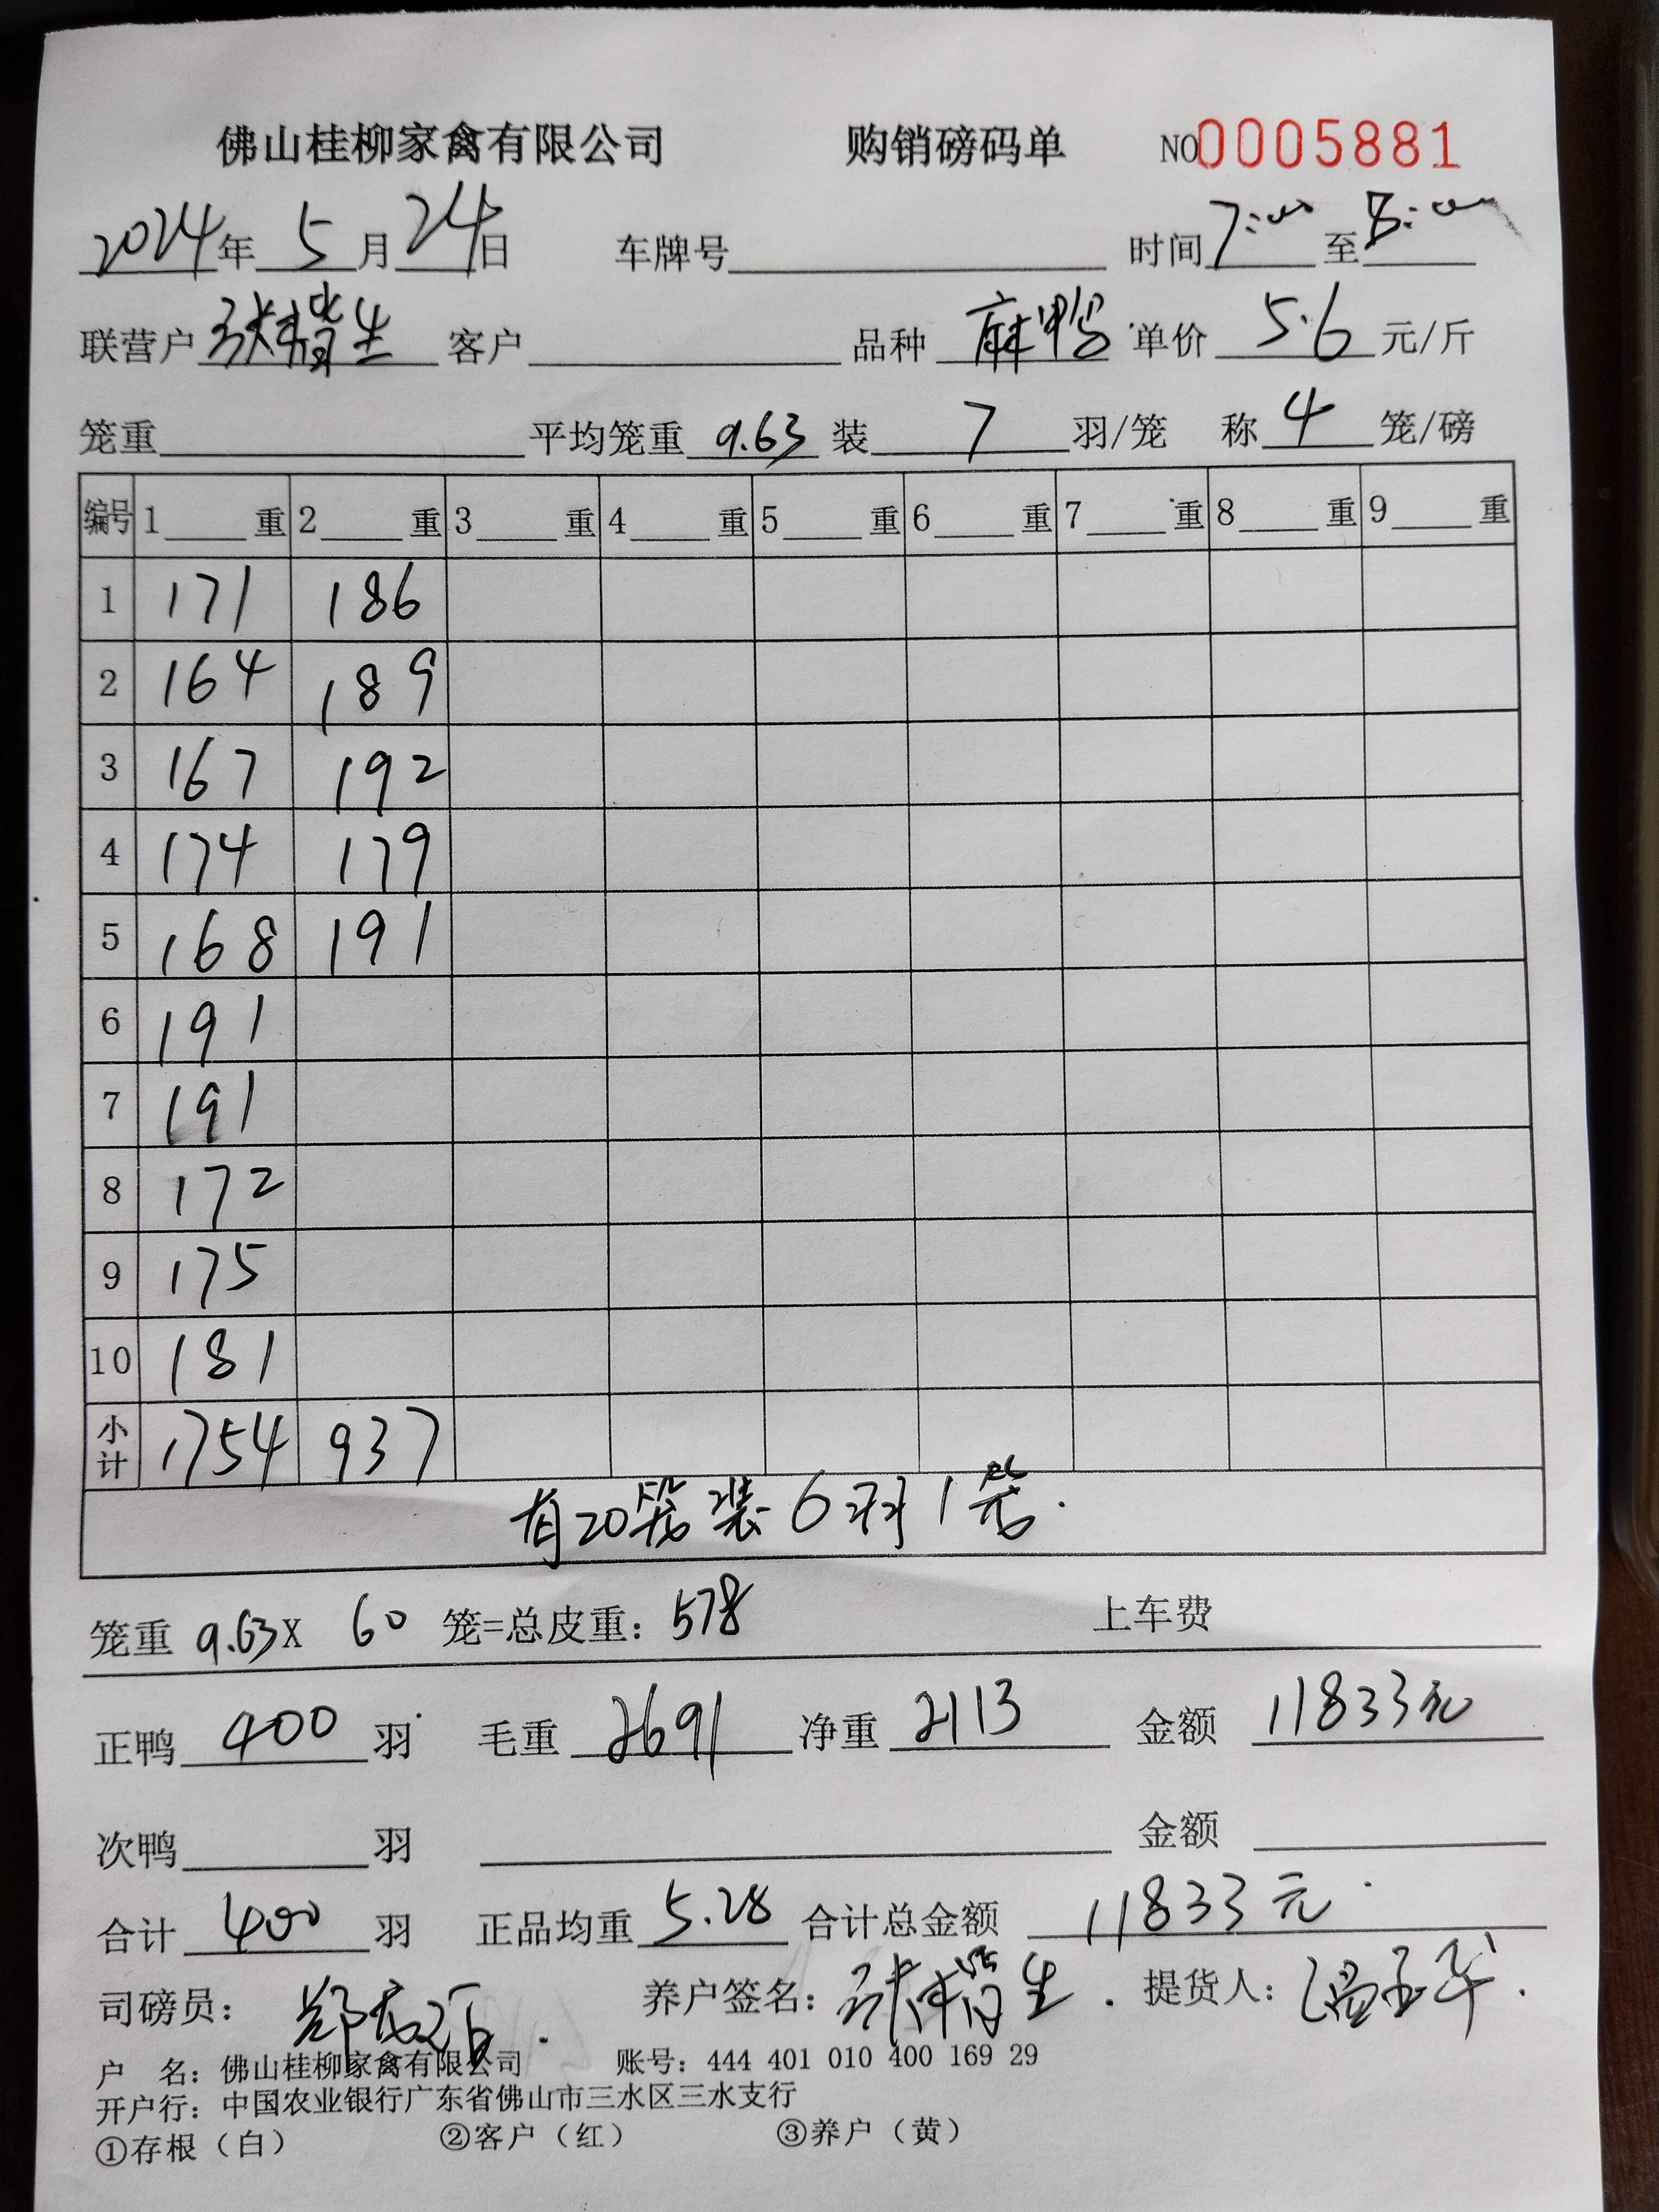 佛山桂柳家禽有限公司 购销磅码单 NO0005881
2024年5月24日 车牌号 时间7:00至8:00
联营户 客户 品种 麻鸭 单价 5.6 元/斤
笼重 平均笼重 9.63 装 7 羽/笼 称 4 笼/磅
编号 1 重 2 重 3 重 4 重 5 重 6 重 7 重 8 重 9 重
1 171 186
2 164 189
3 167 192
4 174 179
5 168 191
6 191
7 191
8 172
9 175
10 181
小计 1754 937
有20笼装6羽1笼.
笼重 9.63X 60 笼=总皮重: 578 上车费
正鸭 400 羽 毛重 2691 净重 2113 金额 11833元
次鸭 羽 金额
合计 400 羽 正品均重 5.28 合计总金额 11833元
司磅员: 养户签名: 提货人:
户 名: 佛山桂柳家禽有限公司 账号: 444 401 010 400 169 29
开户行: 中国农业银行广东省佛山市三水区三水支行
①存根（白） ②客户（红） ③养户（黄）